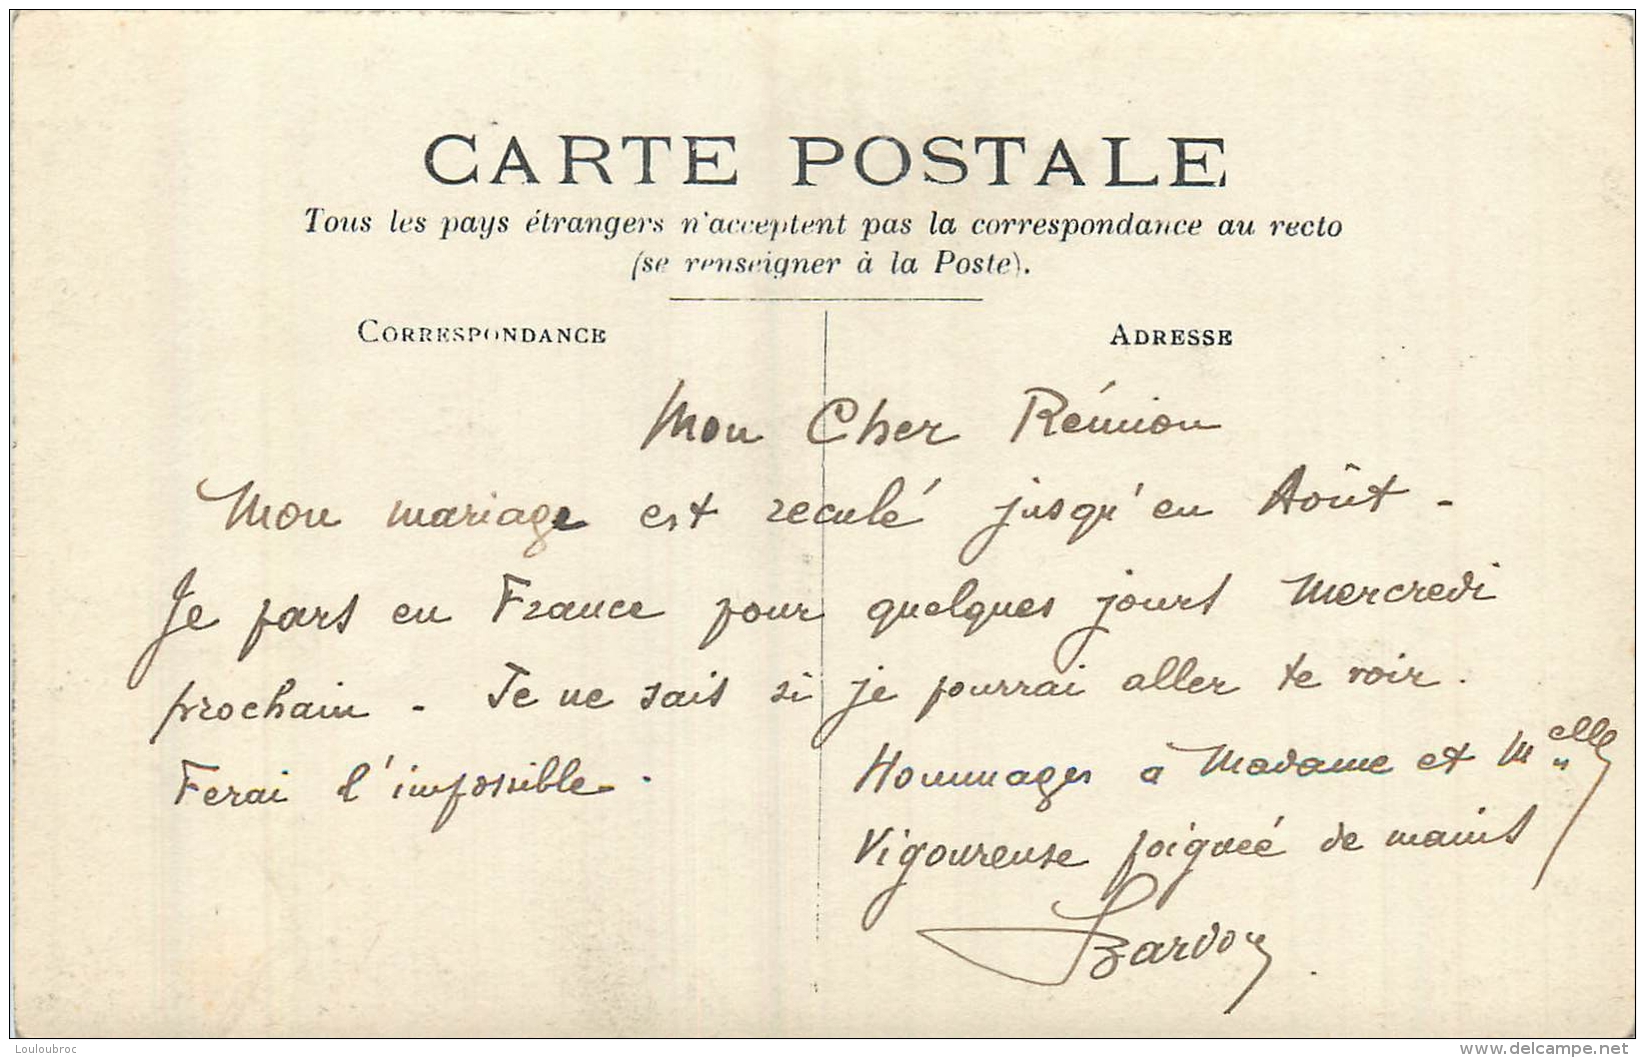 CARTE POSTALE
Tous les pays étrangers n'acceptent pas la correspondance au recto
(se renseigner à la Poste).
CORRESPONDANCE
ADRESSE
Mon Cher Réunion
Mon mariage est reculé jusqu'en Août -
Je pars en France pour quelques jours Mercredi
prochain - Je ne sais si je pourrai aller te voir.
Ferai l'impossible.
Hommages a Madame et Melle
Vigoureuse poignéé de mains
Louloubroc
delcampe.net